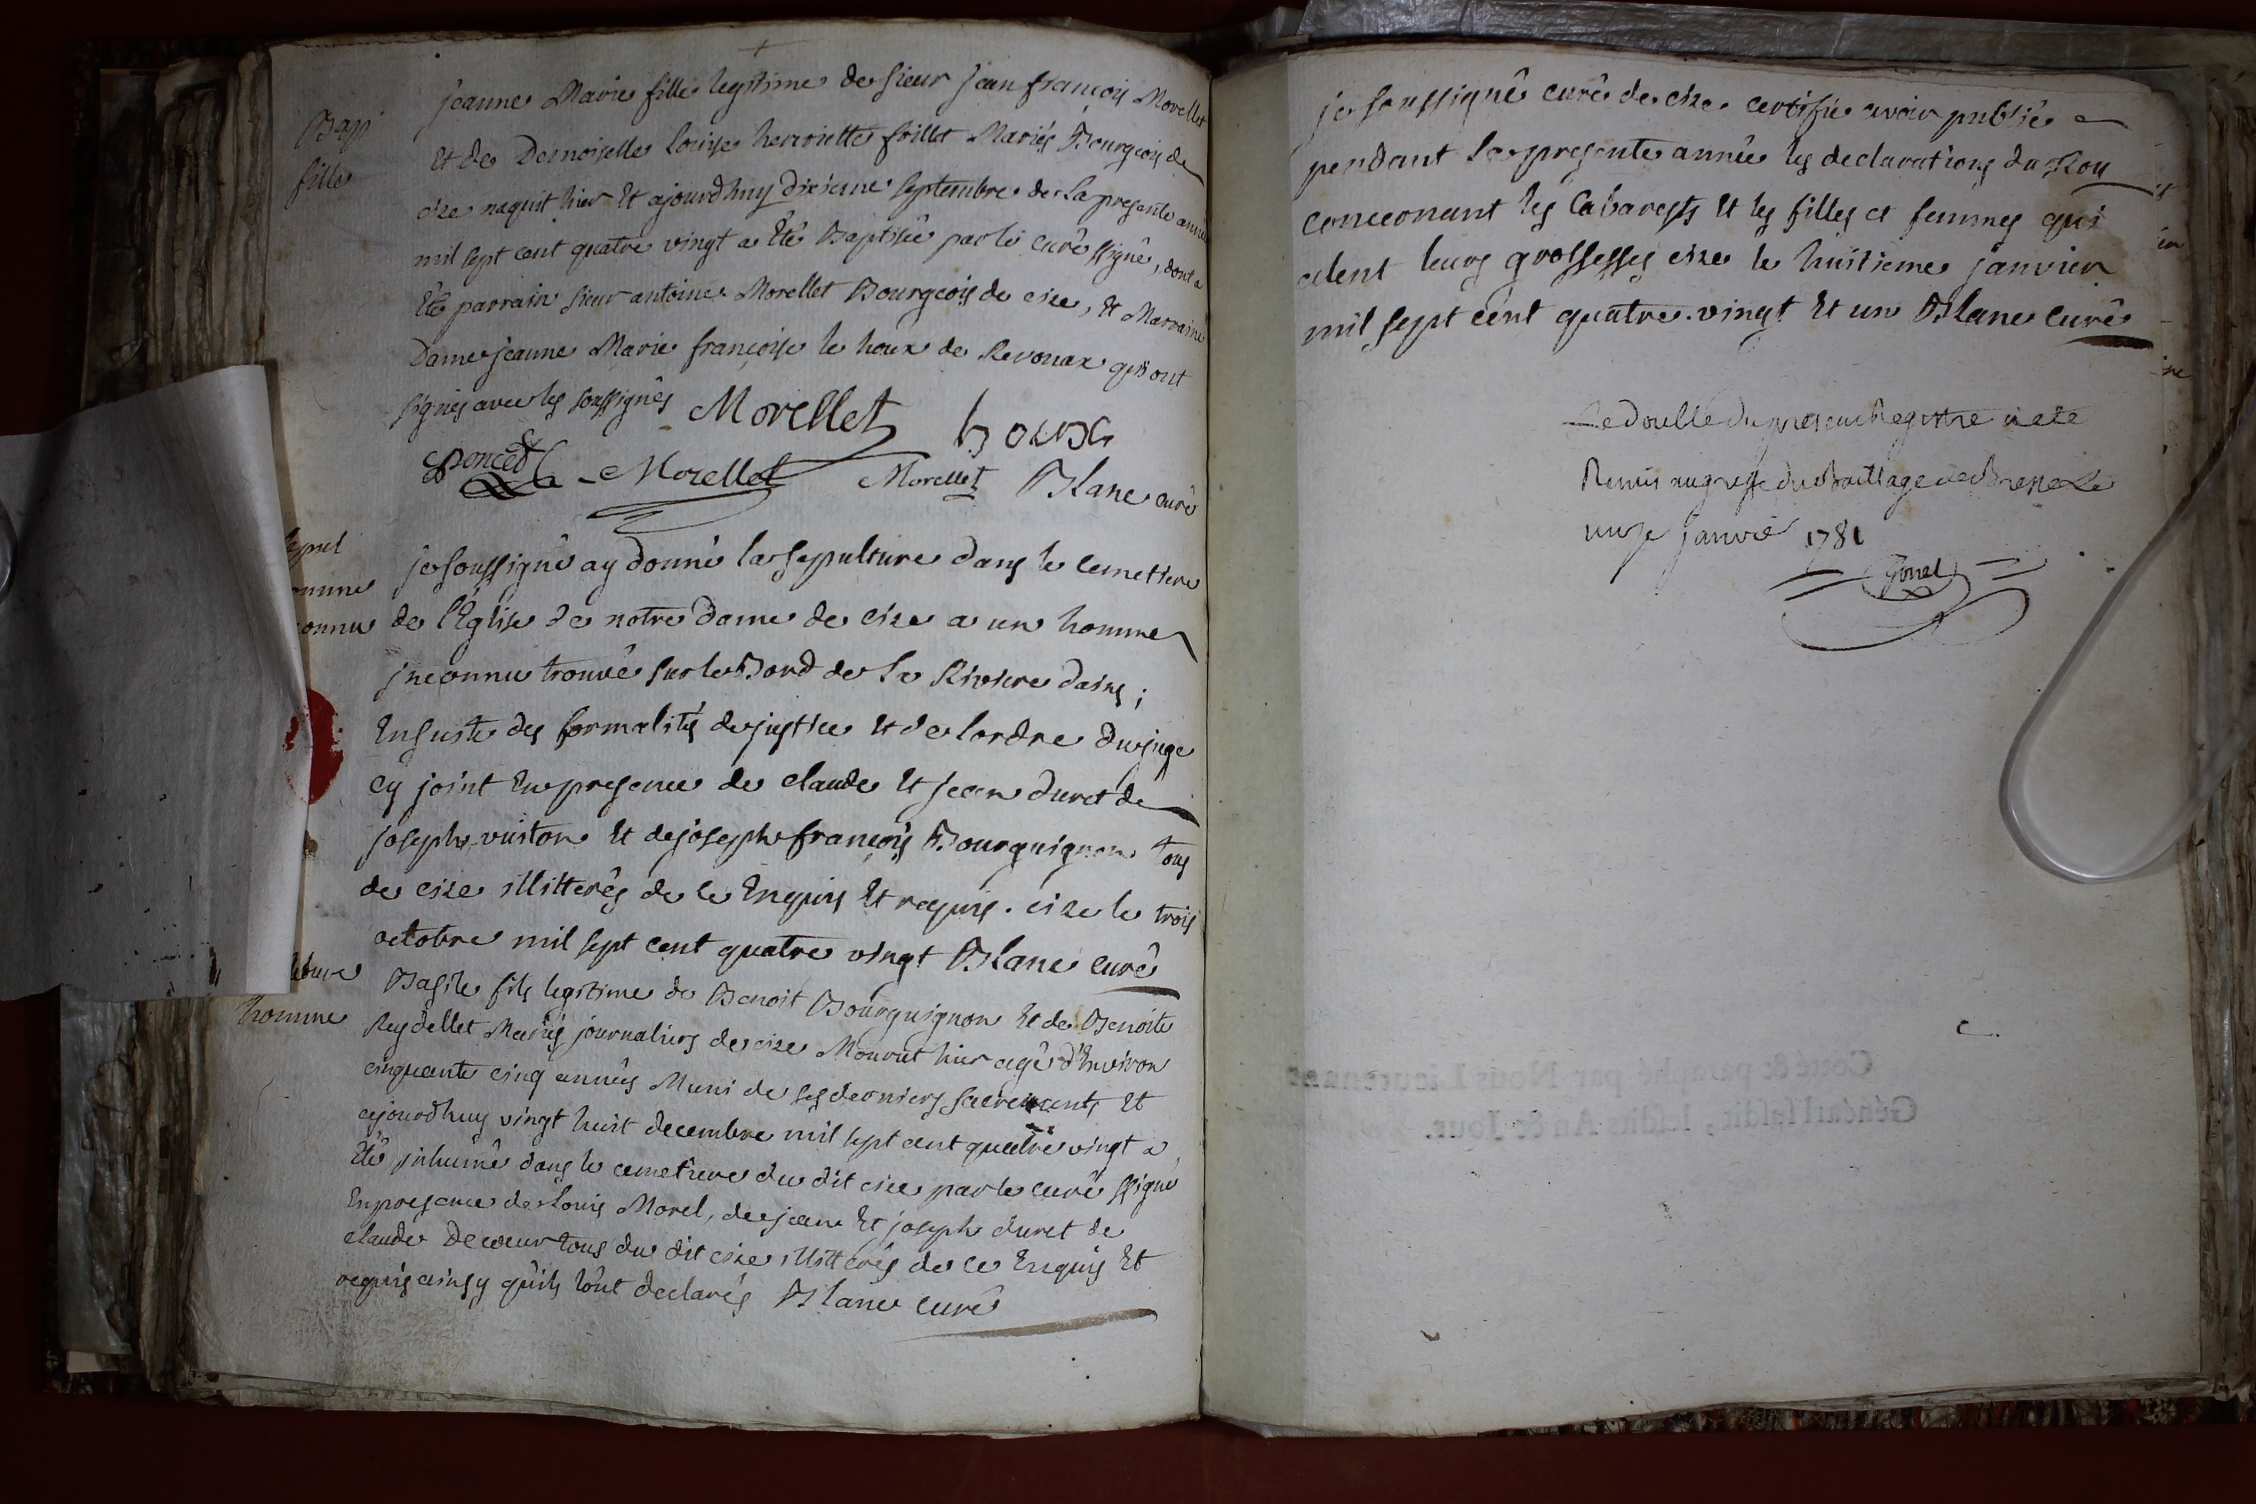 Bap
fille
jeanne Marie fille legitime de sieur jean françois Morellet
Et de Demoiselle louise henriette frillet Mariés Bourgeois de
cize naquit hier Et ajourdhuy dixieme septembre de la presente année
mil sept cent quatre vingt a Eté Baptisée par le curé ssigné, dont a
Eté parrain sieur antoine Morellet Bourgeois de cize, Et Marraine
Dame jeanne Marie françoise le houx de Revonax qui ont
signés avec les soussignés Morellet houx
Poncet Morellet Morellet Blanc curé
sepul
omme
connu
je soussigné ay donné la sepulture dans le cemetiere
de l'Eglise de notre Dame de cize a un homme
jnconnu trouvé sur le Bord de la Riviere dains ;
Ensuite des formalités de justice Et de lordre du juge
cy joint En presence de claude Et jean duret de
joseph vuiton Et de joseph françois Bourguignon tous
de cize illitterés de ce Enquis Et requis. cize le trois
octobre mil sept cent quatre vingt Blanc curé
homme
Basile fils legitime de Benoit Bourguignon Et de Benoite
Reydellet Mariés journaliers de cize Mourut hier agé d'Environ
cinquante cinq années Muni de ses derniers sacrements Et
ajourdhuy vingt huit decembre mil sept cent quatre vingt a
Eté jnhumé dans le cemetiere du dit cize par le curé ssigné
En presence de Louis Morel, de jean Et joseph duret de
claude Decoeur tous du dit cize illitterés de ce Enquis Et
requis ainsy quils l'ont declarés Blanc curé
je soussigné curé de cize certifie avoir publié
pendant la presente année les declarations du Roy
concernant les Cabarests Et les filles et femmes qui
celent leurs grossesses cize le huitieme janvier
mil sept cent quatre-vingt Et un Blanc curé
Le double du present Registre a été
Remis au greffe du Bailliage de Bresse Le
onze janvié 1781
Gonet
Cotté & paraphé par Nous Lieutenant
Général susdit, lesdits An & Jour.